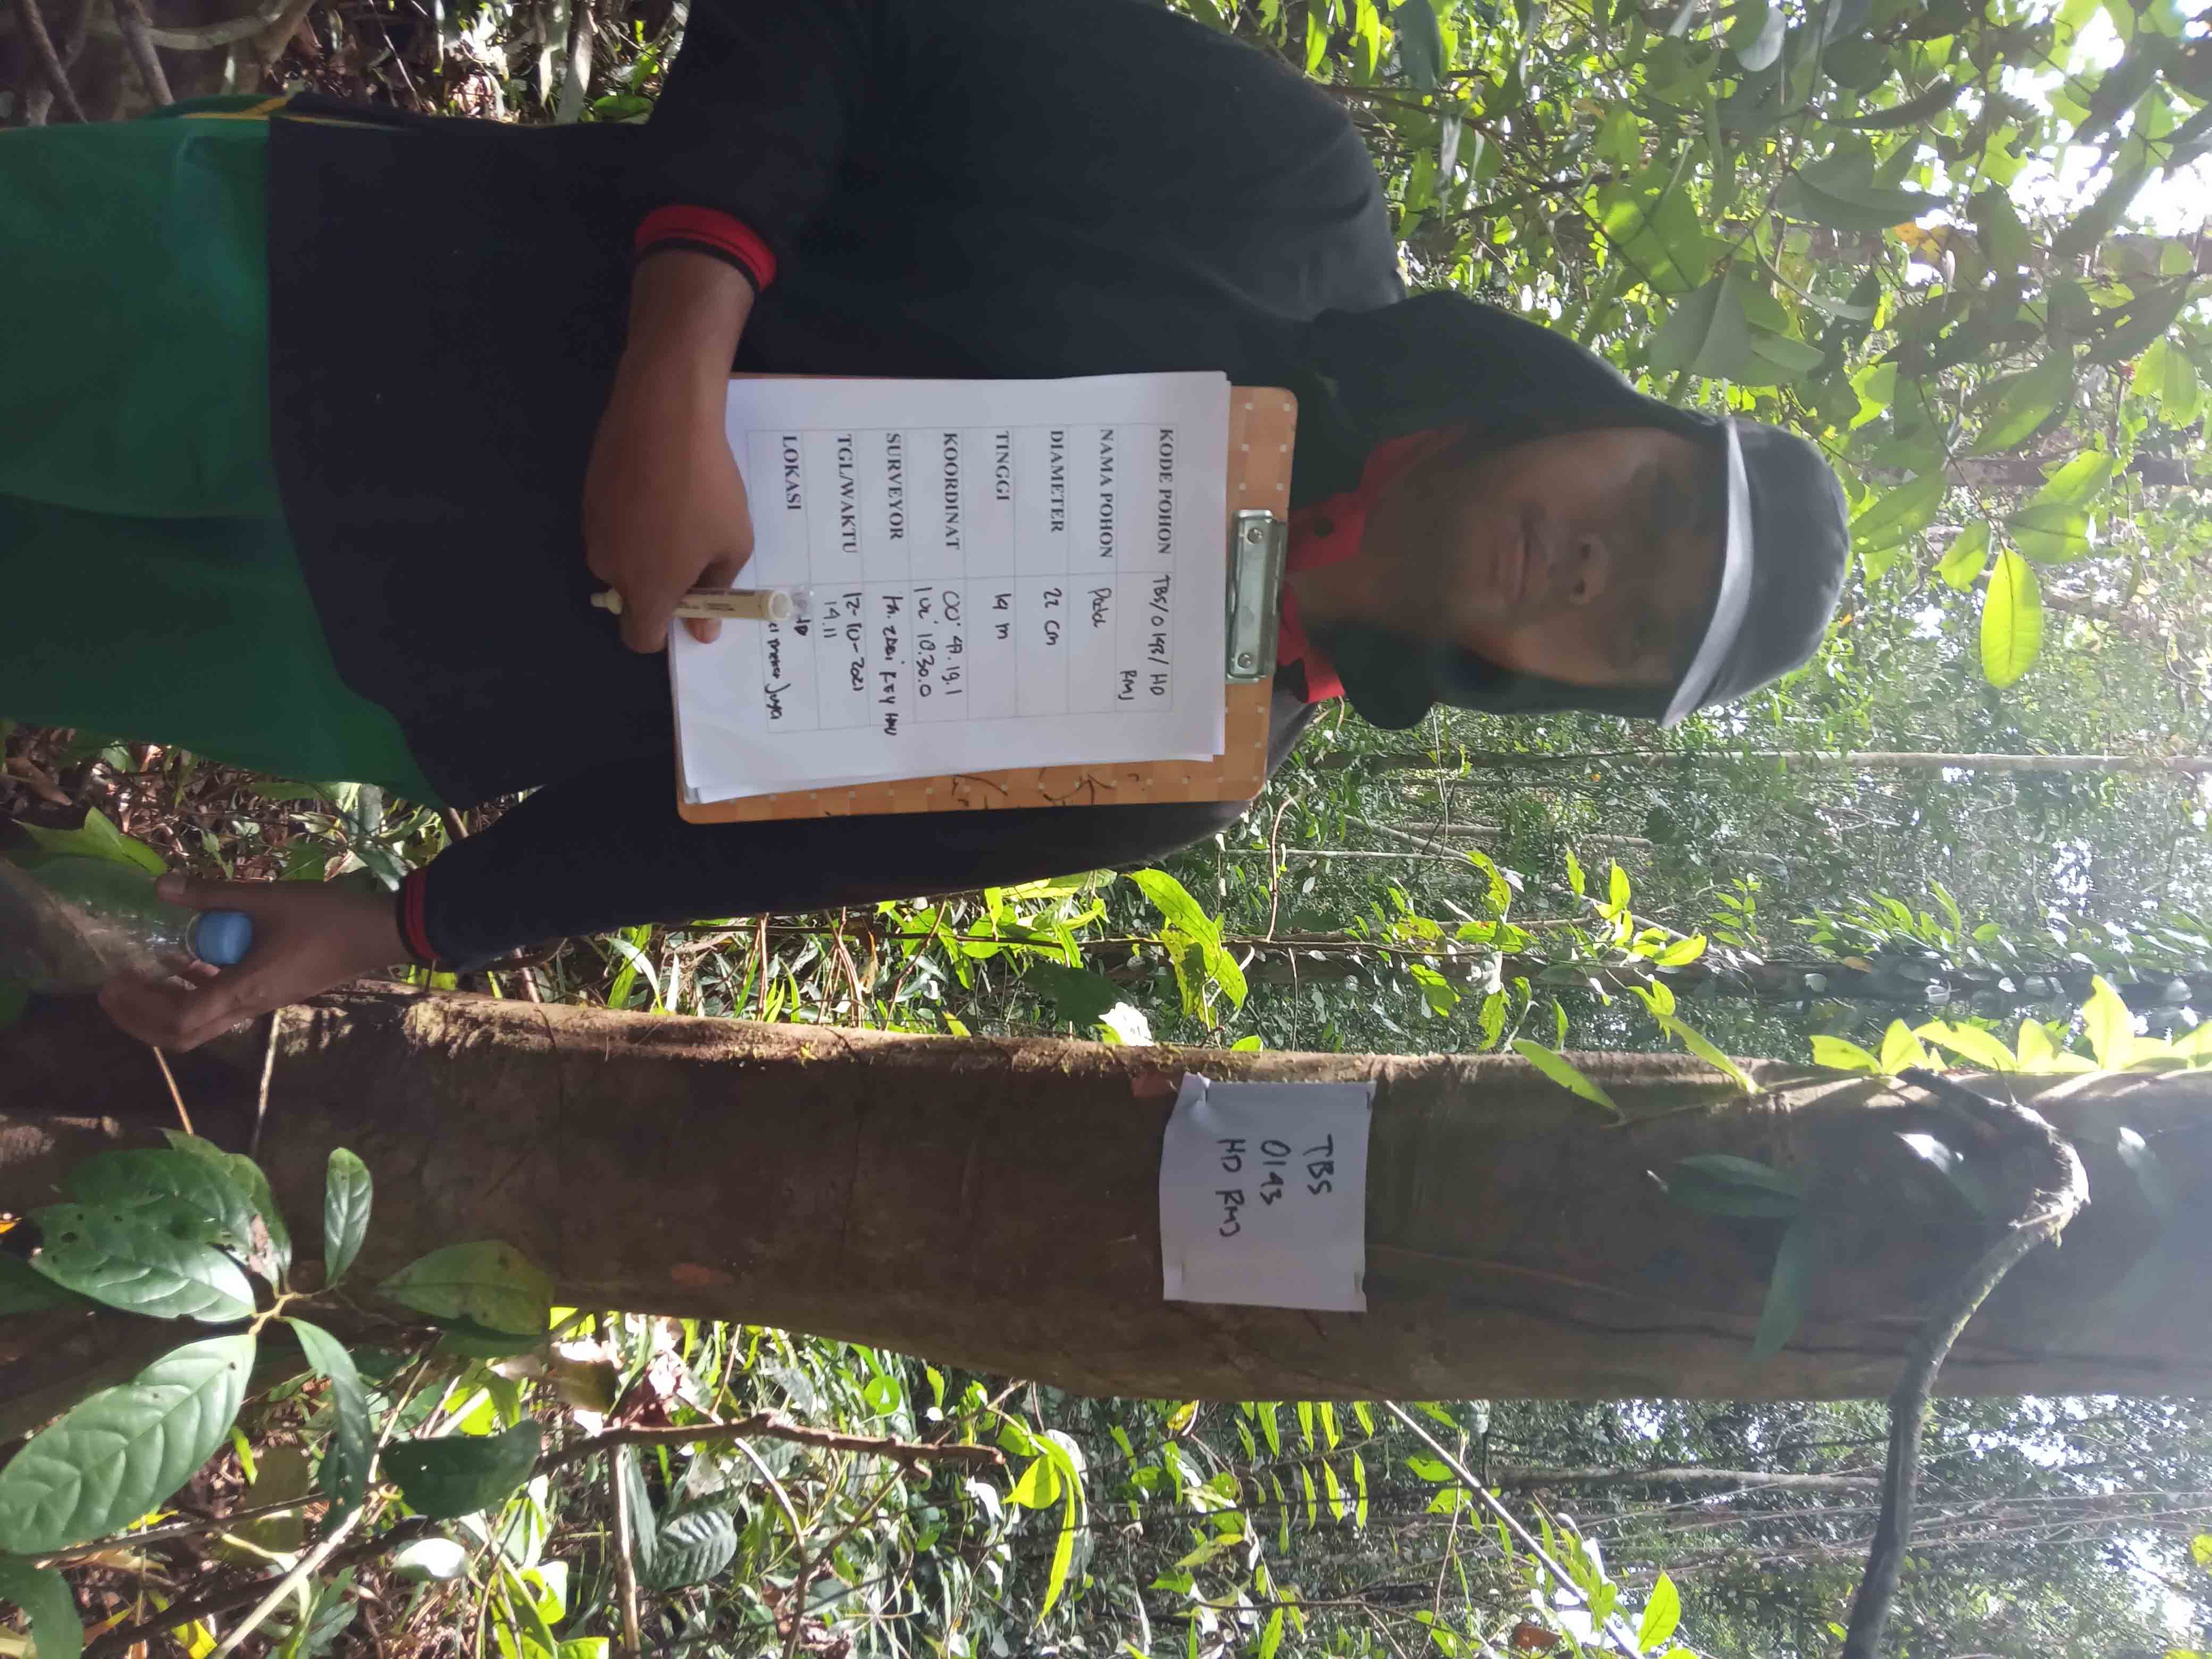 TBS
0143
HD RMJ
KODE POHON TBS/0143/HD
RMJ
NAMA POHON
DIAMETER 22 cm
TINGGI 19 m
KOORDINAT 00° 47.19.1
102° 18.30.0
SURVEYOR
TGL/WAKTU 12-10-2021
14.11
LOKASI HD
Jaya